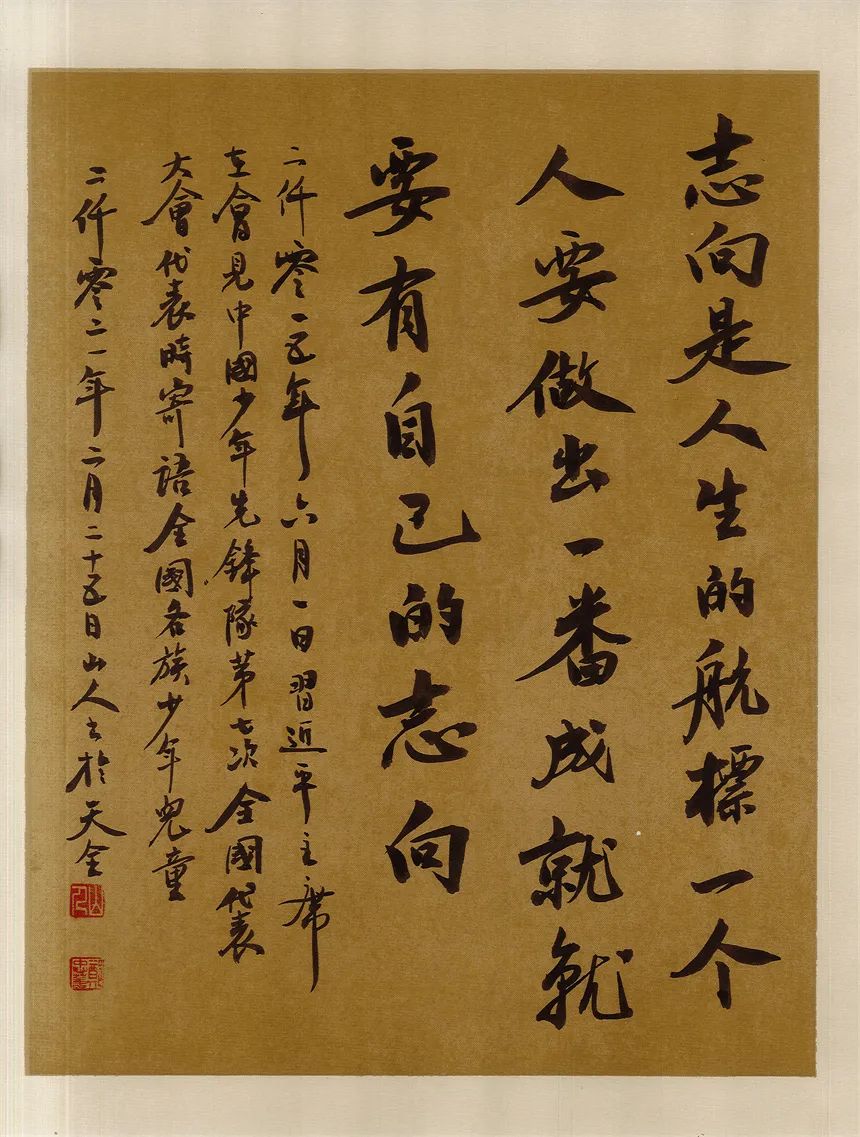 志向是人生的航標一个
人要做出一番成就就
要有自己的志向
二仟零一五年六月一日習近平主席
在會見中國少年先鋒隊第七次全國代表
大會代表時寄語全國各族少年兒童
二仟零二一年二月二十五日山人书於天全
山人